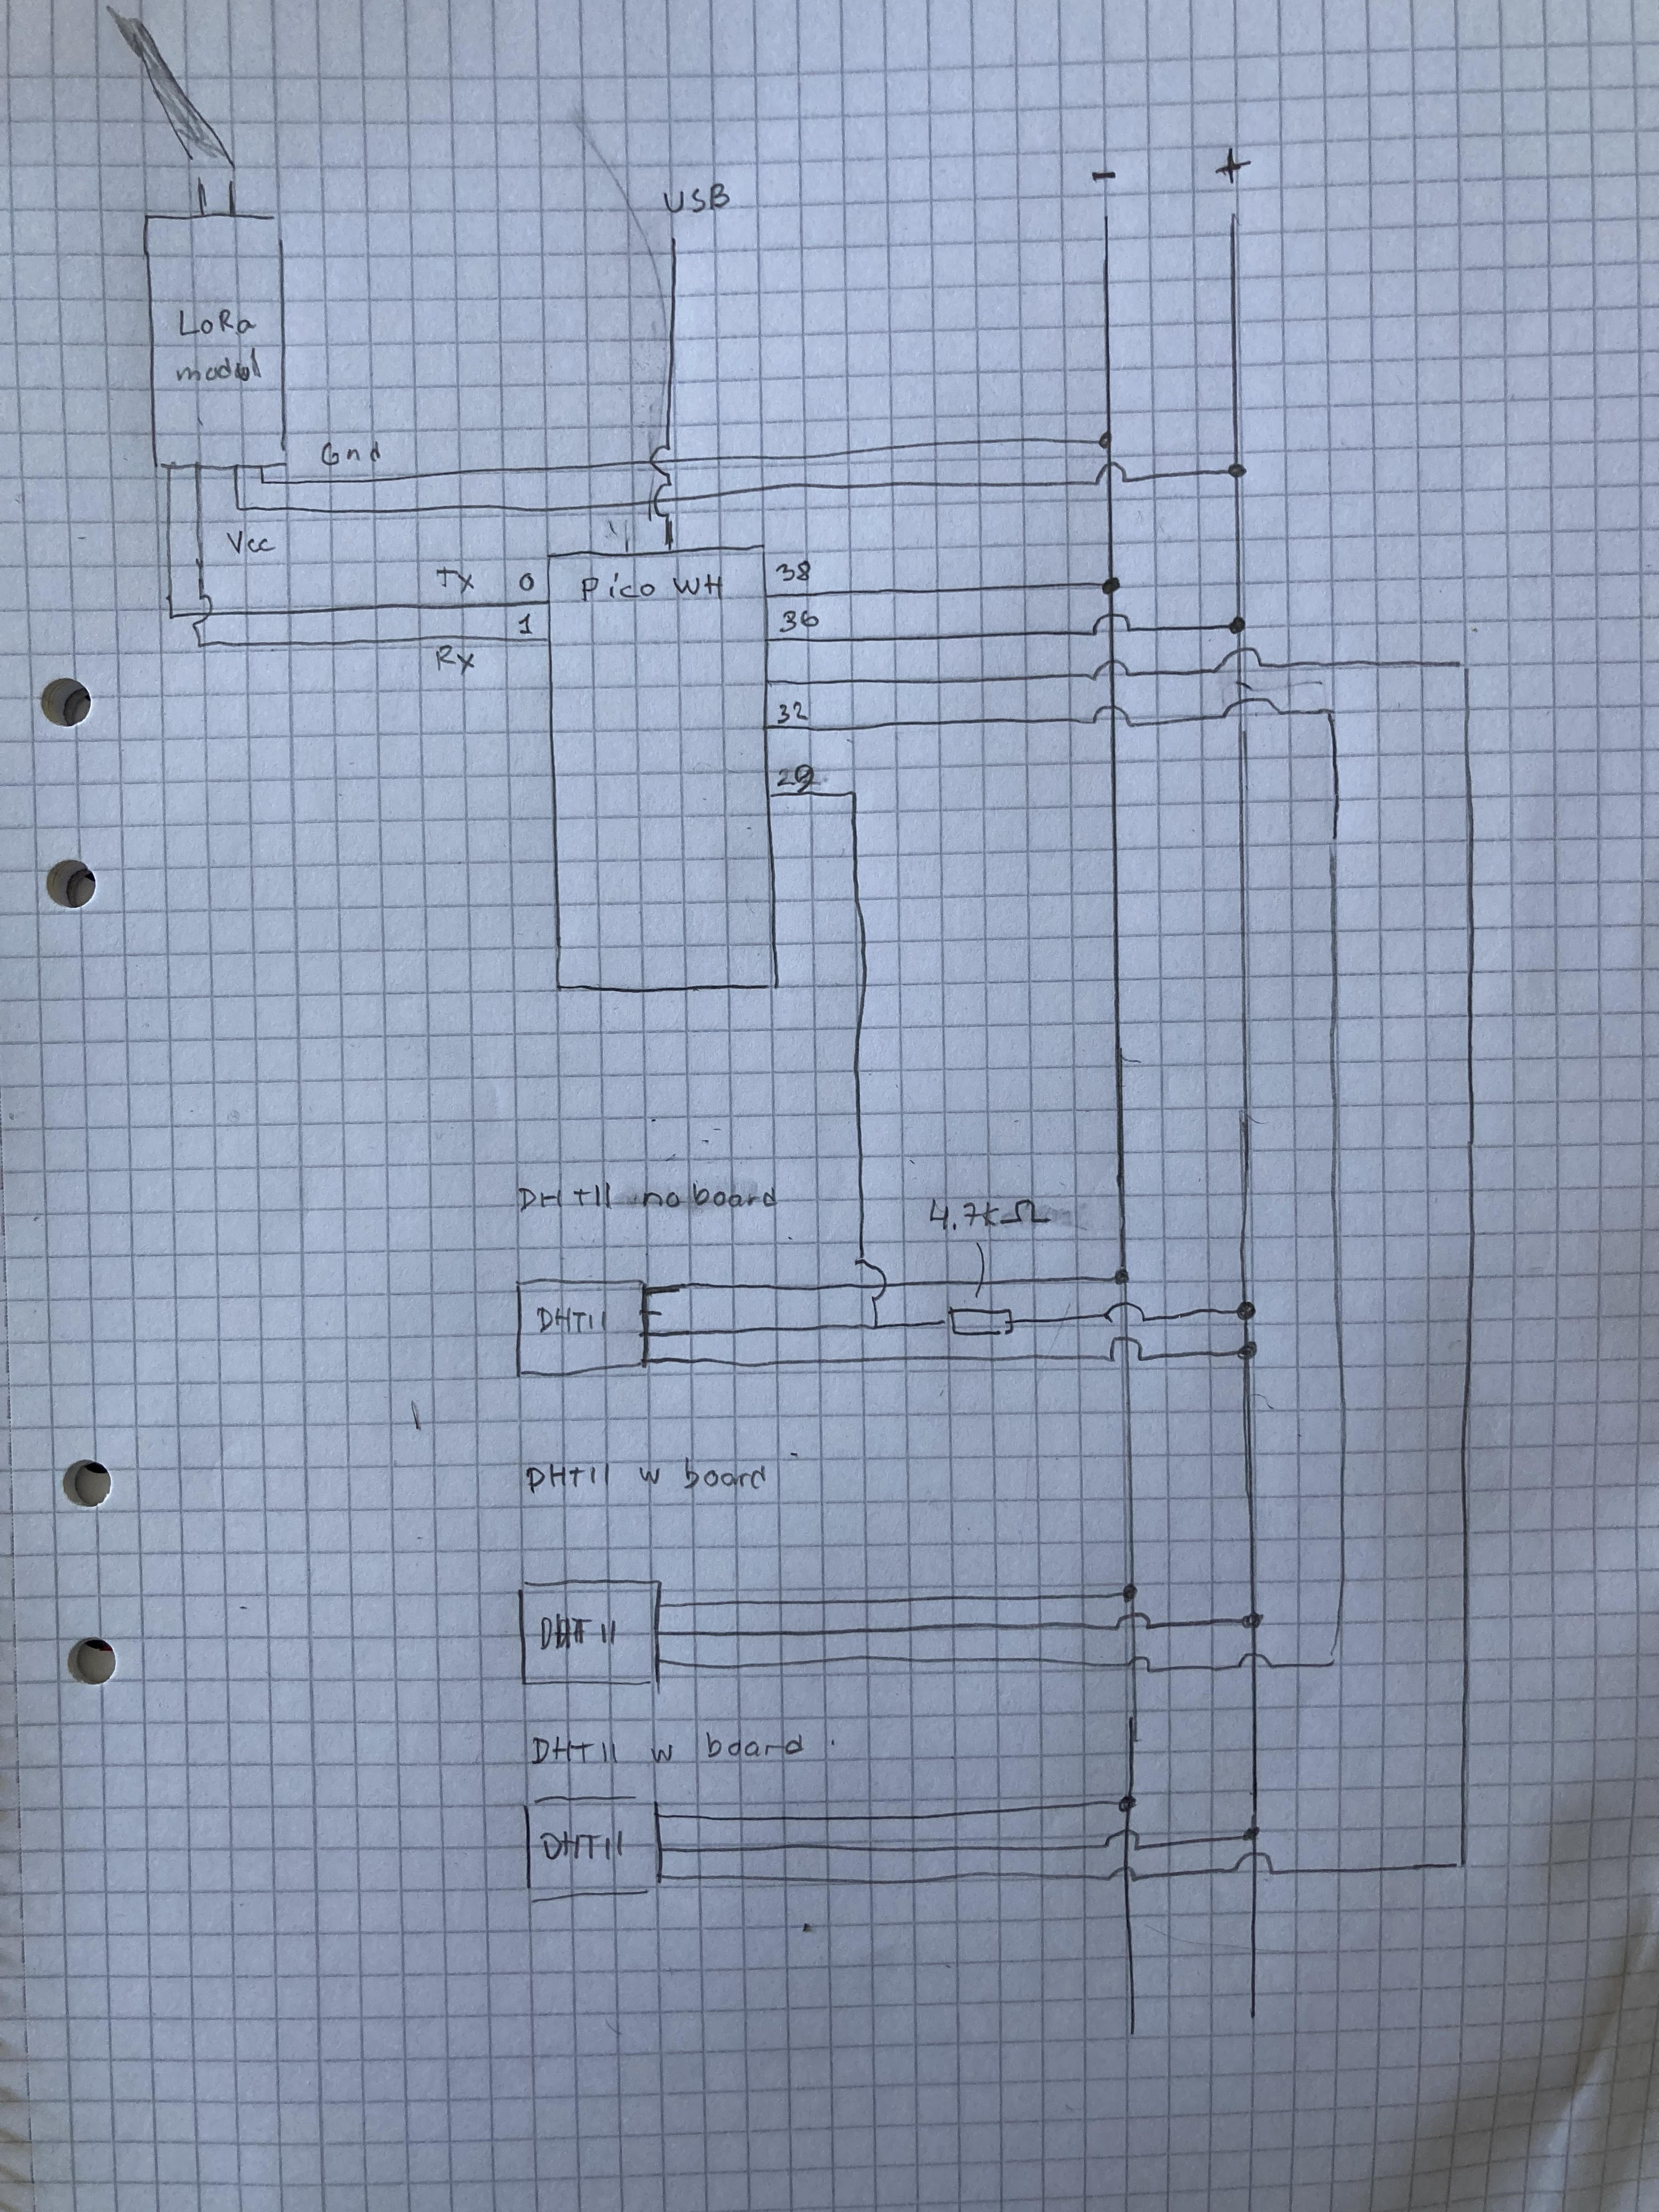 USB
- +
LoRa
modul
Gnd
Vcc
Tx 0
Pico WH
38
1
36
Rx
32
29
DHT11 no board
4.7kΩ
DHT11
DHT11 w board
DHT11
DHT11 w board
DHT11